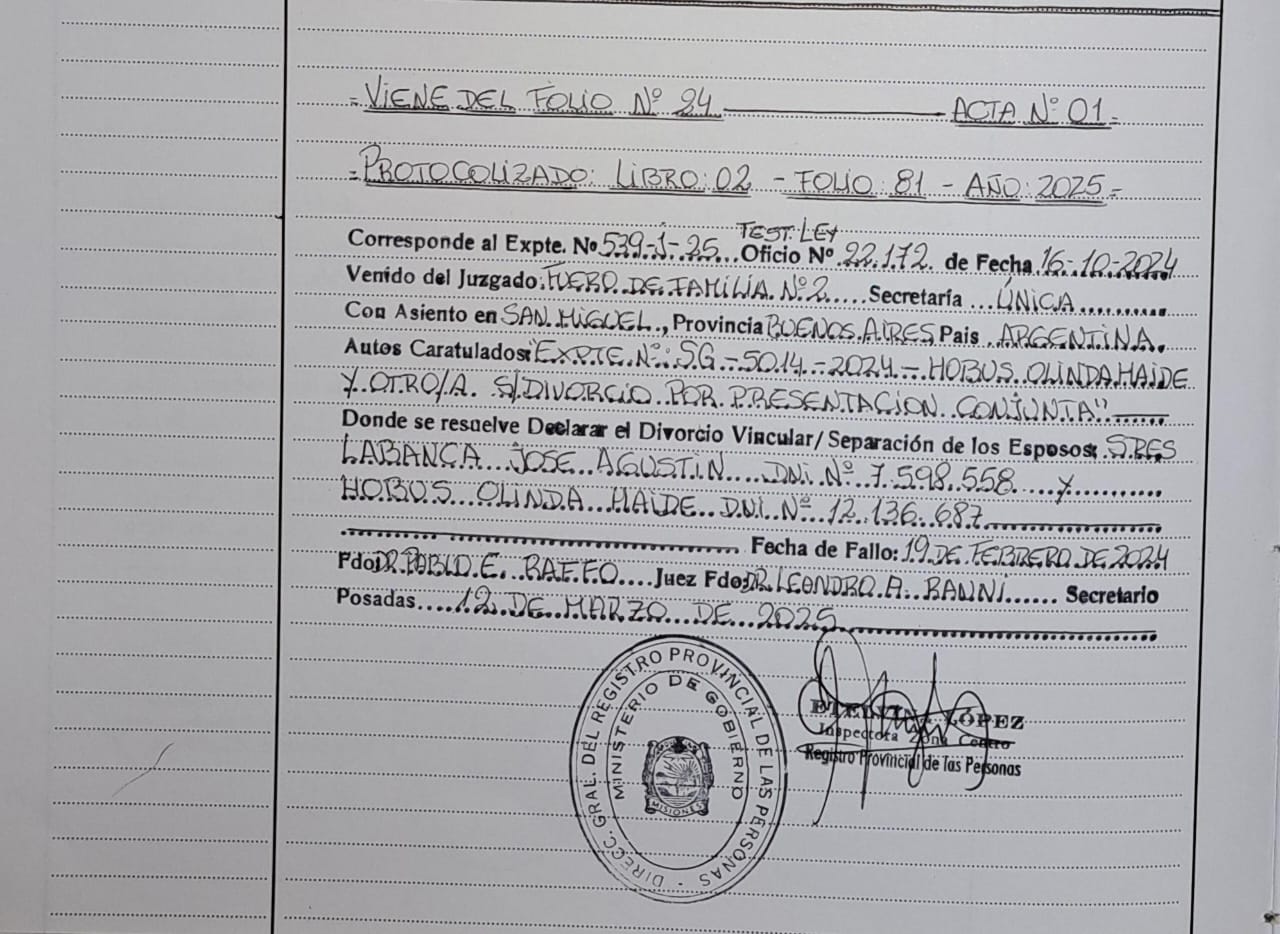 = VIENE DEL FOLIO Nº 24 ACTA Nº 01 =
= PROTOCOLIZADO: LIBRO: 02 - FOLIO: 81 - AÑO: 2025 =
TEST. LEY
Corresponde al Expte. Nº 539-1-25... Oficio Nº 22.172. de Fecha 16-10-2024
Venido del Juzgado: FUERO DE FAMILIA Nº 2..... Secretaría ...ÚNICA...........
Con Asiento en SAN MIGUEL., Provincia BUENOS AIRES País .ARGENTINA.
Autos Caratulados: "EXPTE Nº: SG - 5014 - 2024 - HOBUS OLINDA HAIDE
Y OTRO/A. S/DIVORCIO POR PRESENTACION CONJUNTA"
Donde se resuelve Declarar el Divorcio Vincular/Separación de los Esposos: SRES
LABANCA JOSE AGUSTIN DNI Nº 7.598.558 Y
HOBUS OLINDA HAIDE D.N.I. Nº 12.136.687
Fecha de Fallo: 19 DE FEBRERO DE 2024
Fdo: DR. PABLO E. RAFFO.... Juez Fdo: DR. LEANDRO A. BANNI...... Secretario
Posadas.... 12 DE MARZO DE 2025
DIRECC. GRAL. DEL REGISTRO PROVINCIAL DE LAS PERSONAS
MINISTERIO DE GOBIERNO
MISIONES
LÓPEZ
Inspectora Zona Centro
Registro Provincial de las Personas